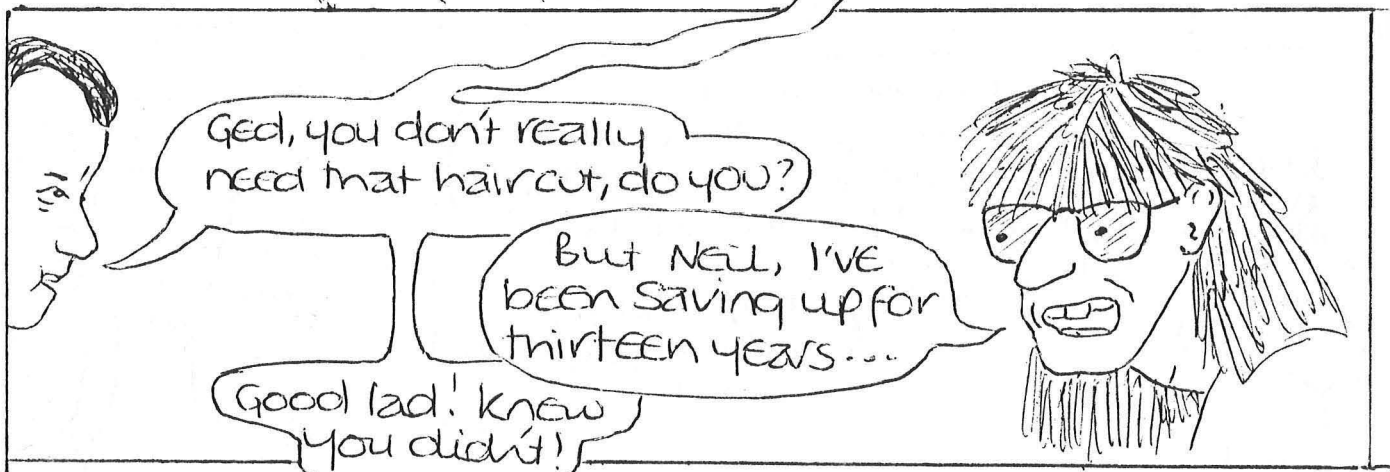 Ged, you don't really
need that haircut, do you?
But Neil, I've
been saving up for
thirteen years...
Good lad! knew
you didn't!